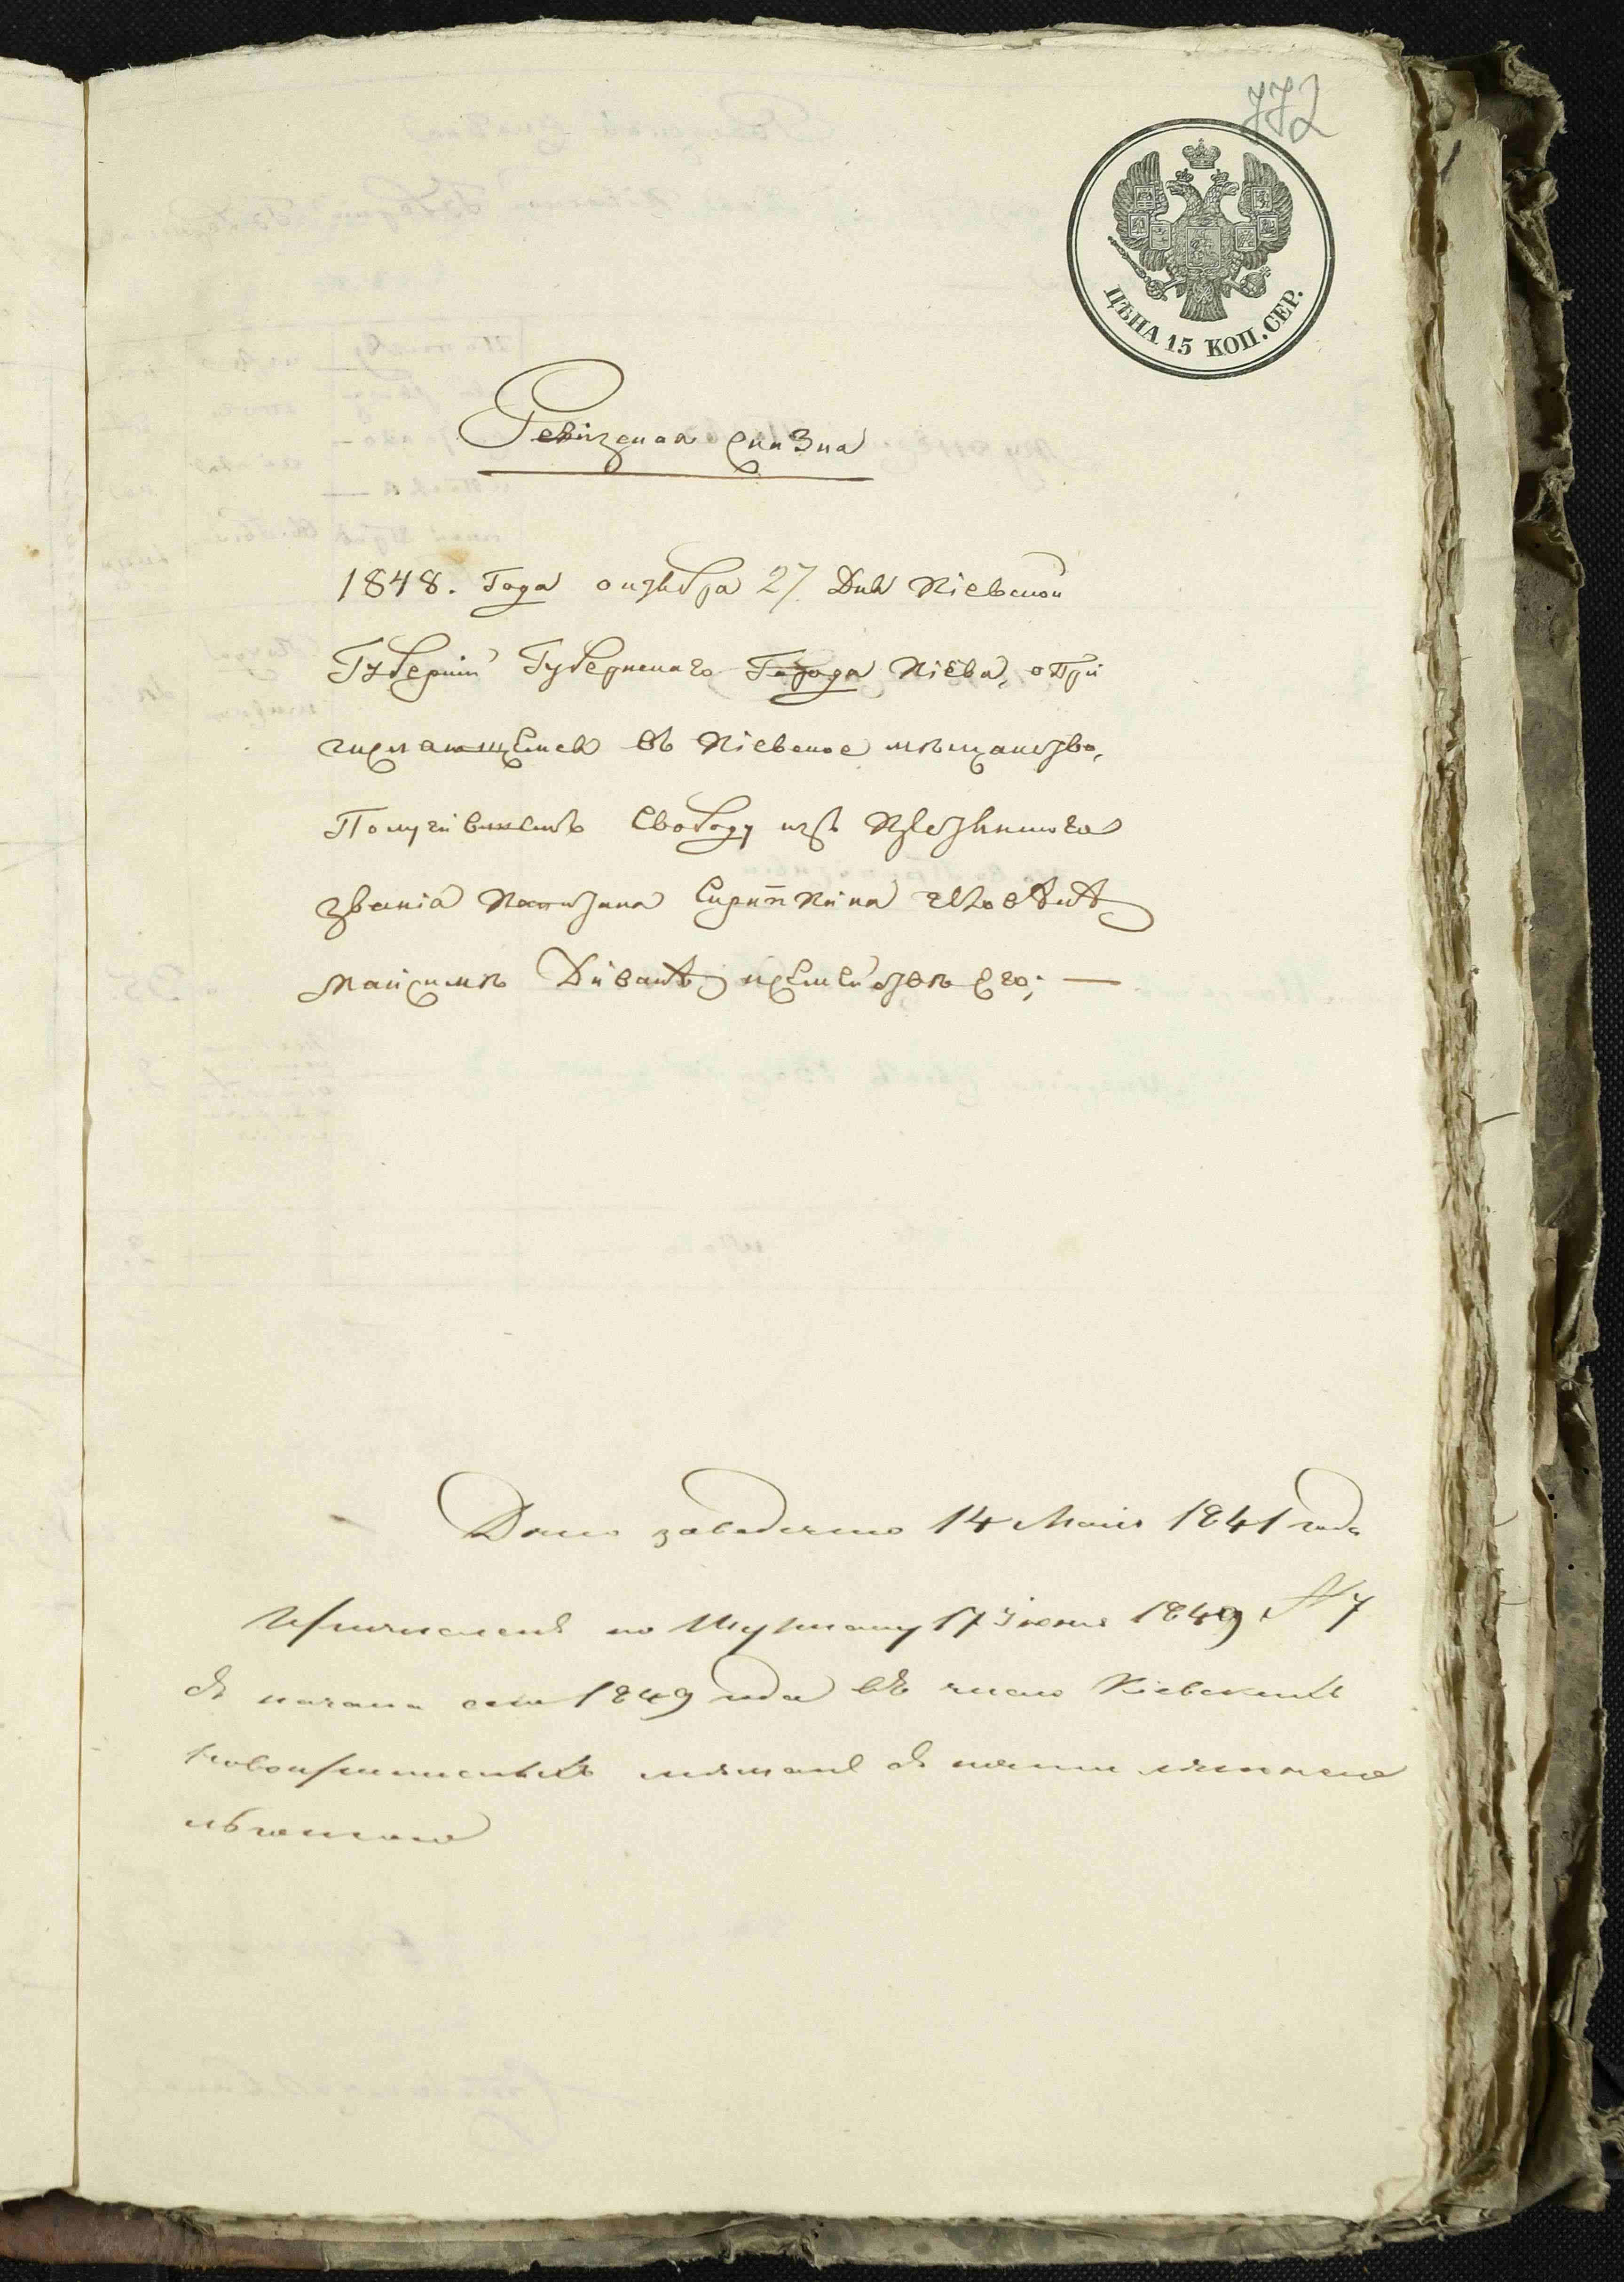 772
ЦѢНА 15 КОП. СЕР.
Ревизская сказка
1848. Года октября 27 Дня Кіевской
Губерніи Губернскаго Города Кіева, о при
числяющемся въ Кіевское мѣщанство,
Получившемъ Свободу изъ Крестьянскаго
званія Скрипкина человѣкѣ
Максимѣ и семействѣ его; —
Дѣло заведено 14 Мая 1841 года
Причисленъ по Журналу 17 Іюня 1849 № 7
съ начала сего 1849 года въ число Кіевскихъ
новоприписныхъ мѣщанъ съ
льготою